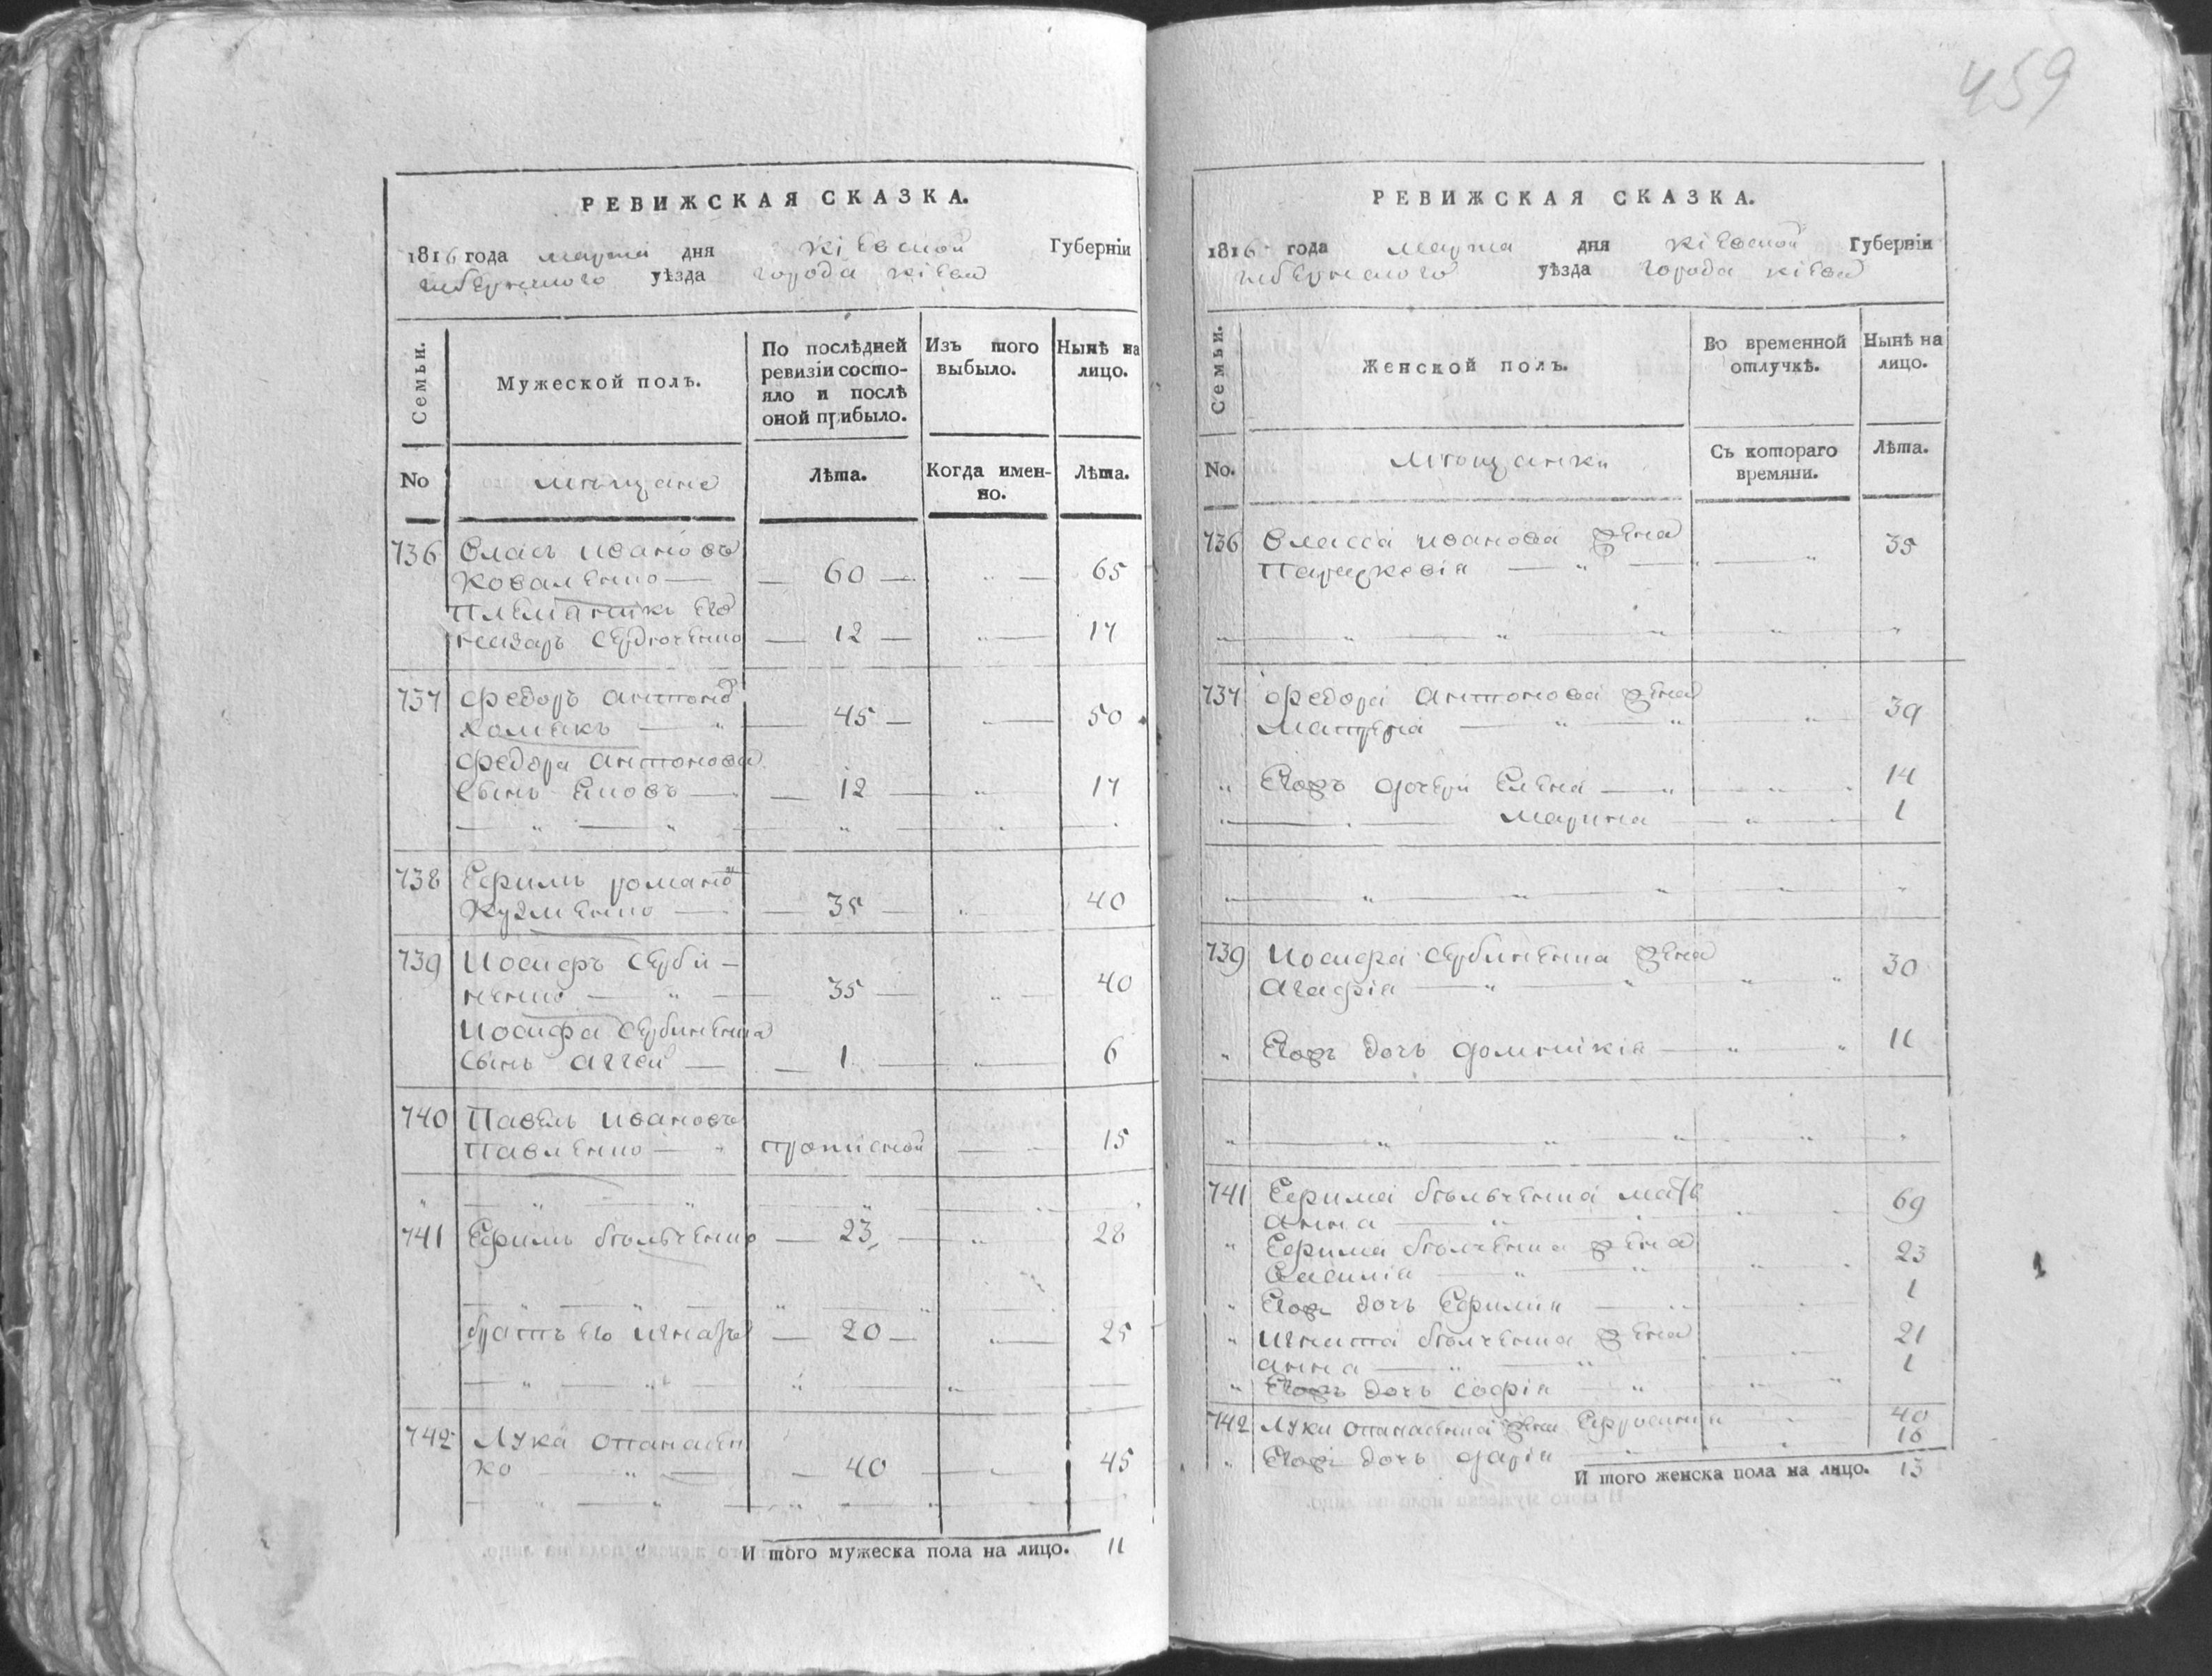 459
РЕВИЖСКАЯ СКАЗКА.
1816 года марта дня Кіевской Губерніи
губернского уѣзда города Кіева
Семьи.
Мужеской полъ.
По послѣдней ревизіи состо-яло и послѣ оной прибыло.
Изъ того выбыло.
Нынѣ на лицо.
No
мѣщане
Лѣта.
Когда имен-но.
Лѣта.
736 Власъ Ивановъ
Коваленко — 60 — 65
племянникъ его
Назаръ Сердюченко — 12 — 17
737 Федоръ Антоновъ
Хомякъ — 45 — 50
Федора Антонова
сынъ Яковъ — 12 — 17
738 Ефимъ Романовъ
Кузменко — 35 — 40
739 Иосифъ Серби-
ненко — 35 — 40
Иосифа Сербиненка
сынъ Аггей — 1 — 6
740 Павелъ Ивановъ
Павленко — прописной — 15
741 Ефимъ Бѣльченко — 23 — 28
братъ его Игнатъ — 20 — 25
742 Лука Опанасен
ко — 40 — 45
И того мужеска пола на лицо. 11
РЕВИЖСКАЯ СКАЗКА.
1816 года марта дня Кіевской Губерніи
губернского уѣзда города Кіева
Семьи.
Женской полъ.
Во временной отлучкѣ.
Нынѣ на лицо.
No.
мѣщанки
Съ котораго времяни.
Лѣта.
736 Власса Иванова жена
Параскевія — 35
737 Федора Антонова жена
Матрена — 39
Егожъ дочери Елена — 14
Марина — 1
739 Иосифа Сербиненка жена
Агафія — 30
Егожъ дочь Домникія — 11
741 Ефима Бѣльченка мать
Анна — 69
Ефима Бѣлченка жена
Василія — 23
Егожъ дочь Ефимия — 1
Игната Бѣлченка жена
Анна — 21
Егожъ дочь Софія — 1
742 Луки Опанасенка жена Ефросиния 40
Егожъ дочь Дарія — 16
И того женска пола на лицо. 13